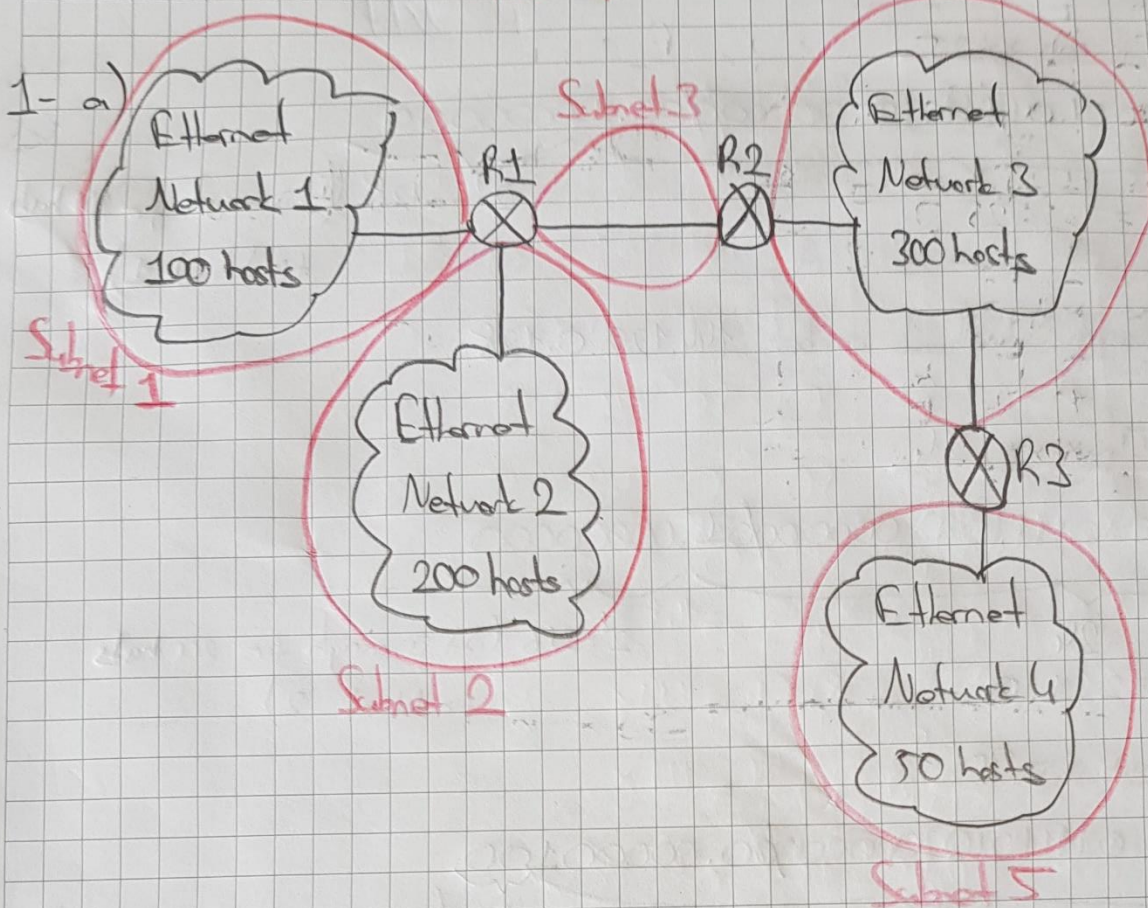 1- a)
Ethernet
Network 1
100 hosts
Subnet 1
R1
Subnet 3
R2
Ethernet
Network 3
300 hosts
Ethernet
Network 2
200 hosts
Subnet 2
R3
Ethernet
Network 4
50 hosts
Subnet 5